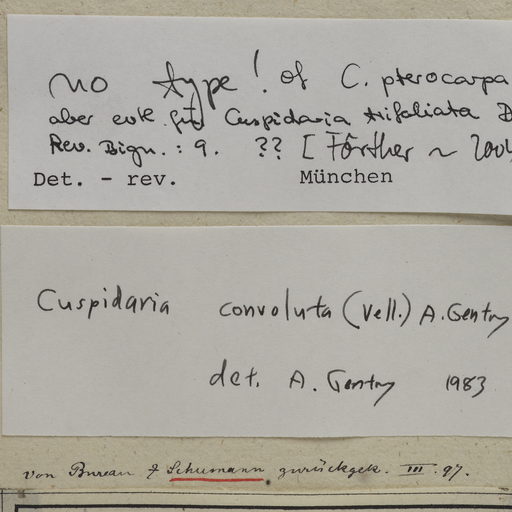 no type! of C. pterocarpa
aber evt. für Cuspidaria trifoliata D
Rev. Bign.: 9. ?? [Förther ~ 2004
Det. - rev. München
Cuspidaria convoluta (Vell.) A. Gentry
det. A. Gentry 1983
von Bureau & Schumann zurückgek. III. 97.